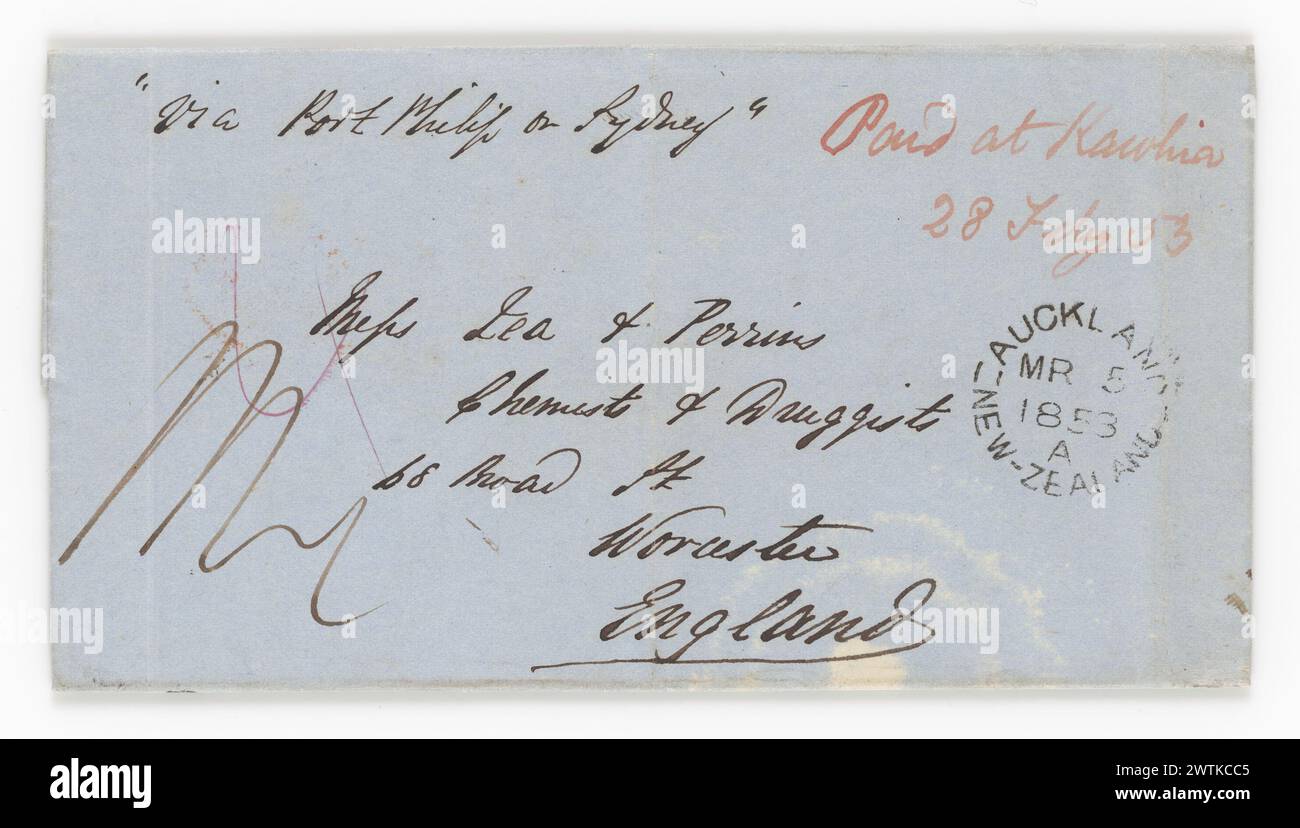 "via Port Philip or Sydney"
Paid at Kawhia
28 Feby 53
Messs Lea & Perrins
Chemists & Druggists
68 Broad St
Worcester
England
AUCKLAND
MR 5
1853
A
NEW-ZEALAND
alamy
Image ID: 2WTKCC5
www.alamy.com